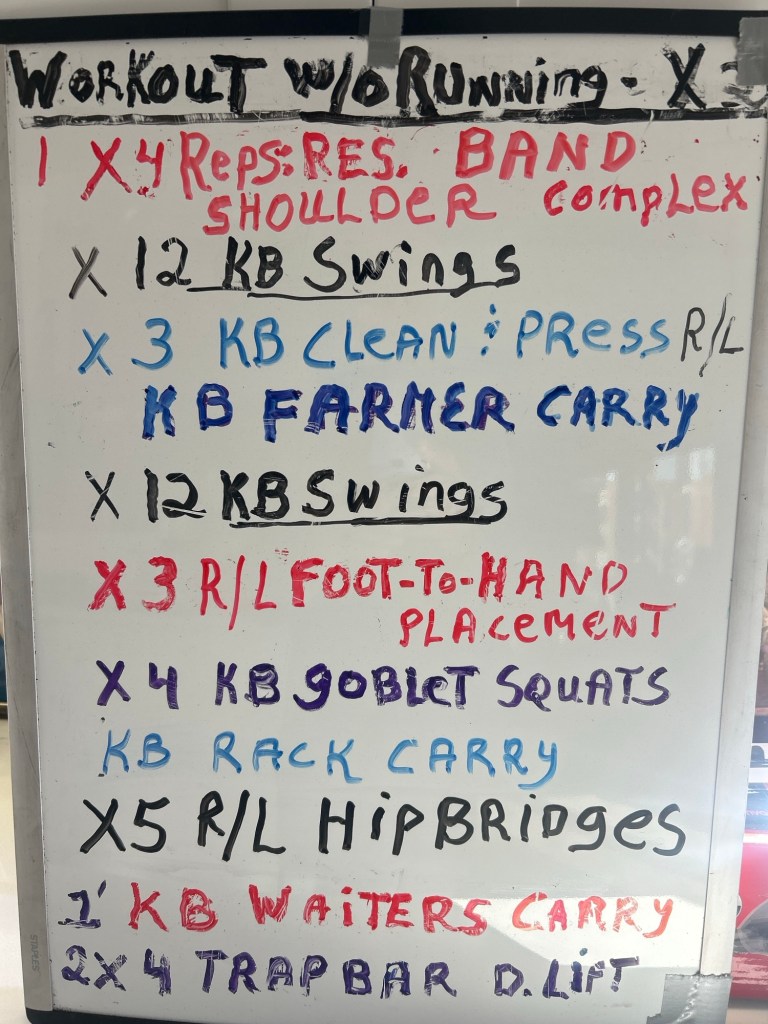 WORKOUT w/o RUNNing - X
1 X4 Reps: RES. BAND
SHOULDER COMPLEX
X 12 KB Swings
X 3 KB CLEAN & PRESS R/L
KB FARMER CARRY
X 12 KB Swings
X 3 R/L FOOT-To-HAND
PLACEMENT
X 4 KB gOBLET SQUATS
KB RACK CARRY
X5 R/L HipBRIDges
1' KB WAiTERS CARRY
2X4 TRAP BAR D.LiFT
STAPLES